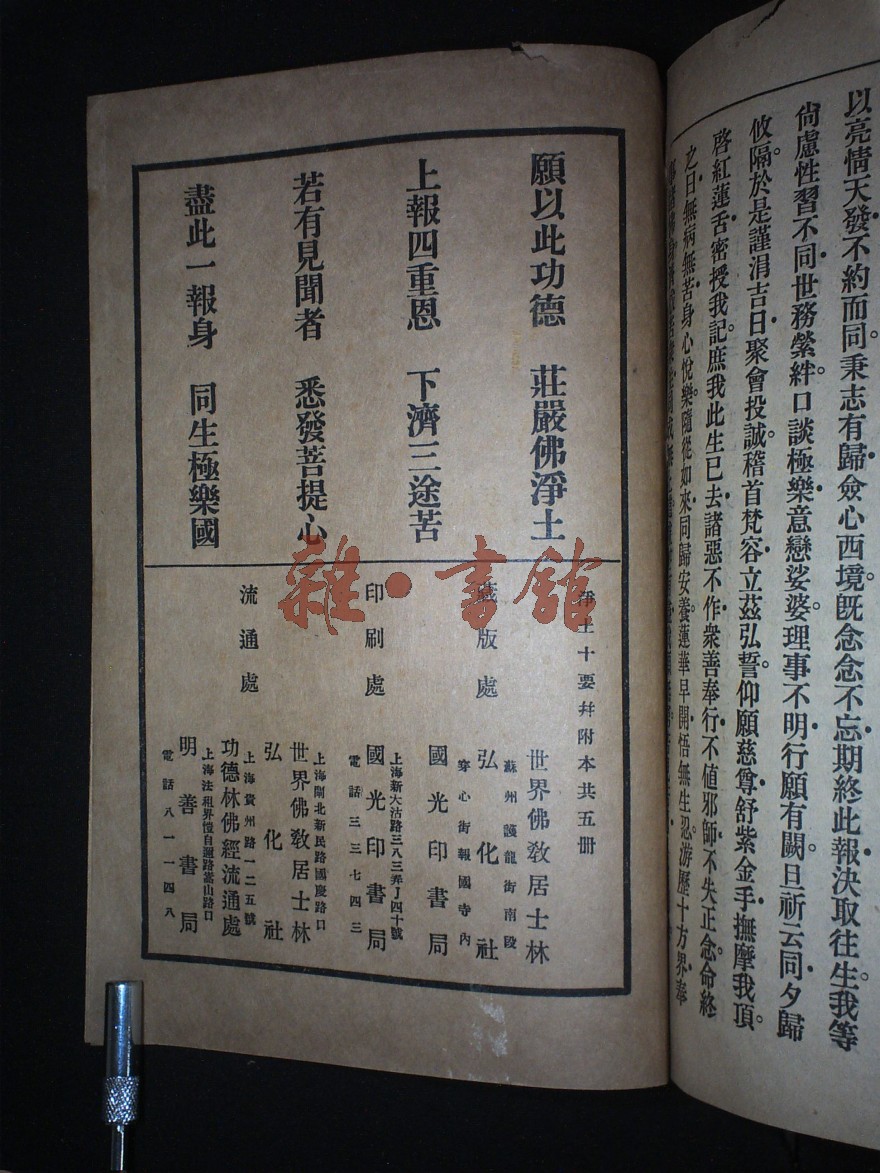 以亮情天發不約而同秉志有歸僉心西境既念念不忘期終此報決取往生我等
尙慮性習不同世務縈絆口談極樂意戀娑婆理事不明行願有闕旦祈云同夕歸
攸隔於是謹涓吉日聚會投誠稽首梵容立茲弘誓仰願慈尊舒紫金手撫摩我頂
啓紅蓮舌密授我記庶我此生已去諸惡不作衆善奉行不值邪師不失正念命終
之日無病無苦身心悅樂隨從如來同歸安養蓮華早開悟無生忍游歷十方界奉
願以此功德 莊嚴佛淨土
上報四重恩 下濟三途苦
若有見聞者 悉發菩提心
盡此一報身 同生極樂國
淨土十要幷附本共五册
版處
世界佛敎居士林
蘇州護龍街南段
弘化社
穿心街報國寺內
國光印書局
印刷處
上海新大沽路三八三弄J四十號
國光印書局
電話三三七四三
流通處
上海閘北新民路國慶路口
世界佛敎居士林
弘化社
上海貴州路一二五號
功德林佛經流通處
上海法租界愷自邇路嵩山路口
明善書局
電話八一一四八
雜·書館